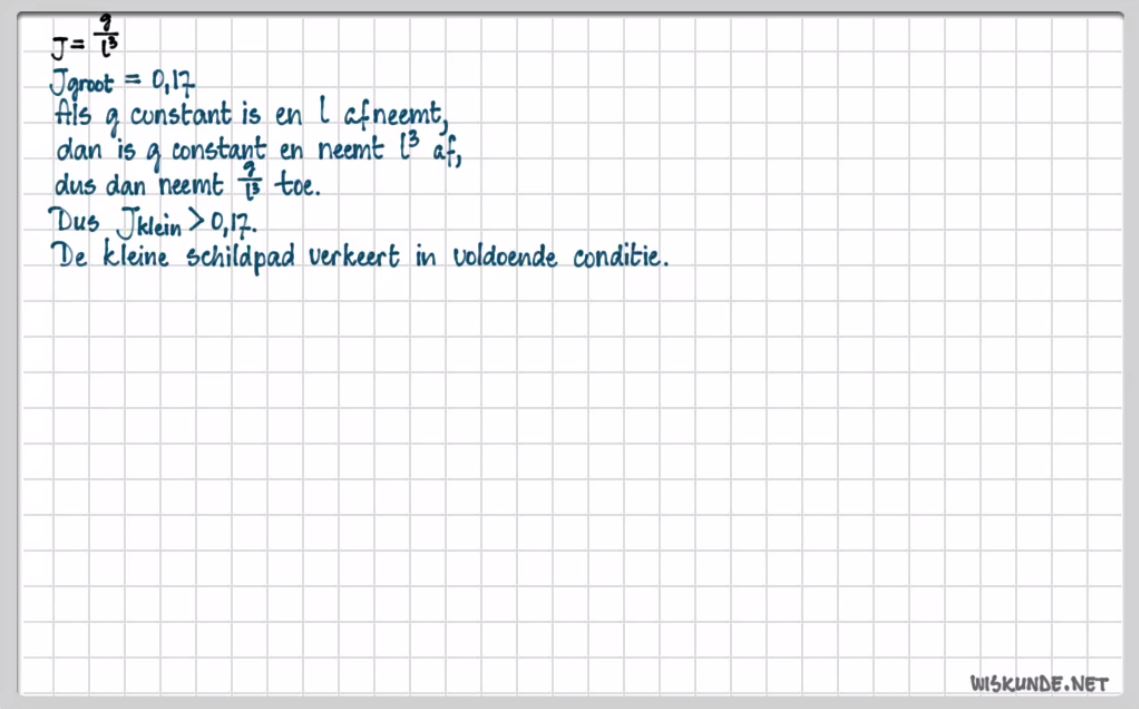 J = g/l³
Jgroot = 0,17
Als g constant is en l afneemt,
dan is g constant en neemt l³ af,
dus dan neemt g/l³ toe.
Dus Jklein > 0,17.
De kleine schildpad verkeert in voldoende conditie.
WISKUNDE.NET